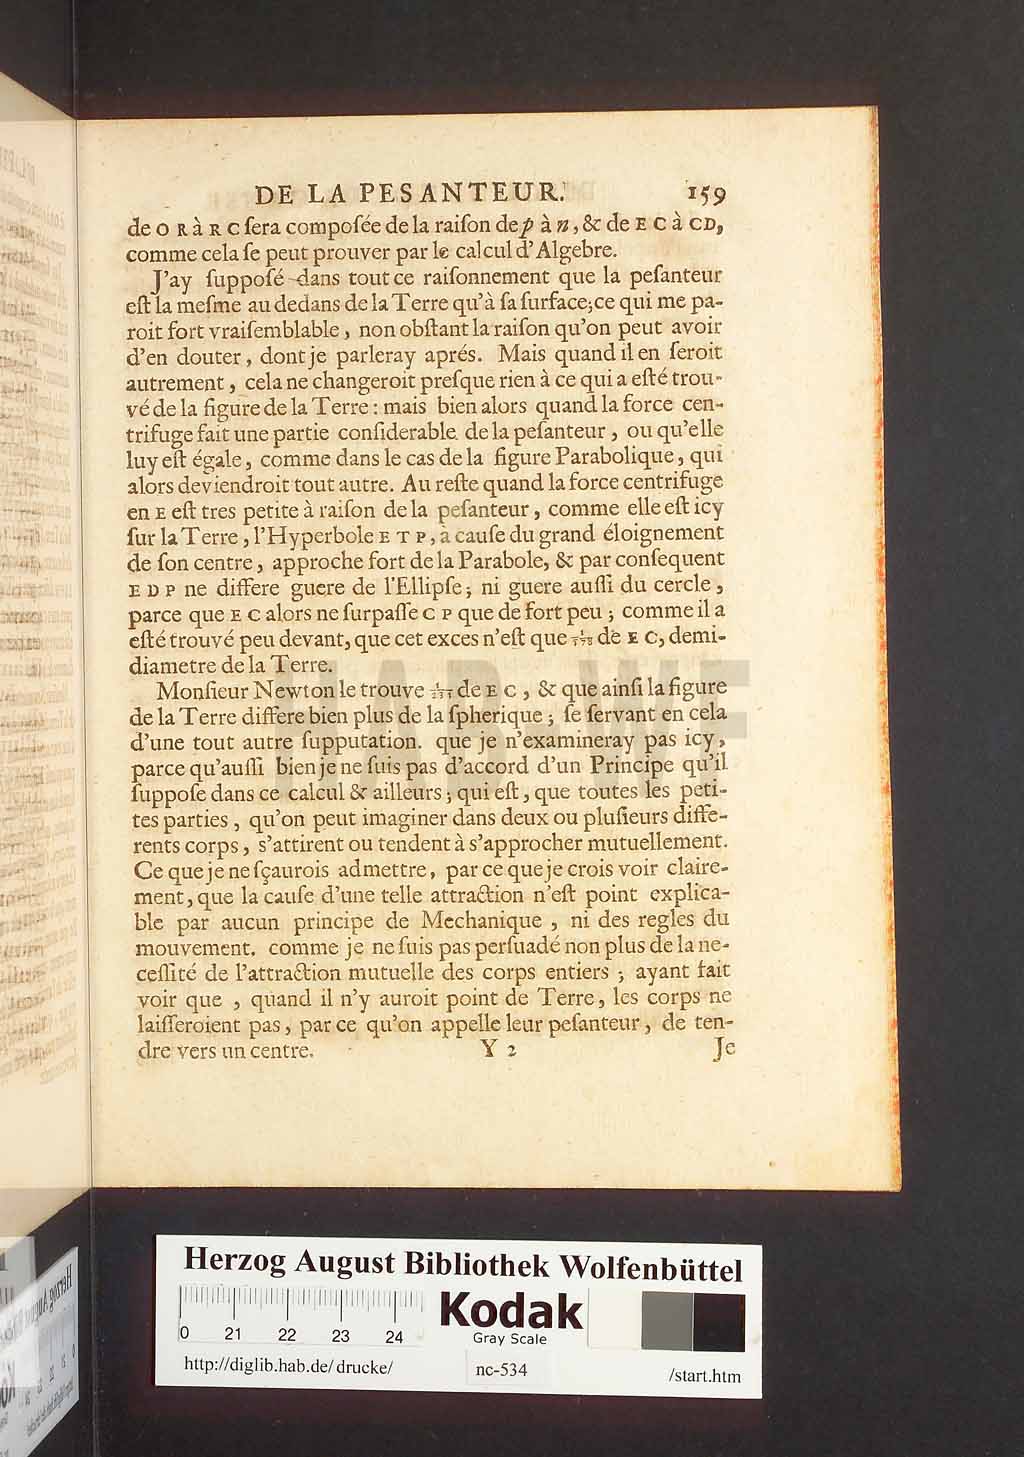 DE LA PESANTEUR. 159
de O R à R C ſera compoſée de la raiſon de p à n, & de E C à CD,
comme cela ſe peut prouver par le calcul d'Algebre.
J'ay ſuppoſé dans tout ce raiſonnement que la peſanteur
eſt la meſme au dedans de la Terre qu'à ſa ſurface; ce qui me pa-
roit fort vraiſemblable, non obſtant la raiſon qu'on peut avoir
d'en douter, dont je parleray aprés. Mais quand il en ſeroit
autrement, cela ne changeroit preſque rien à ce qui a eſté trou-
vé de la figure de la Terre: mais bien alors quand la force cen-
trifuge fait une partie conſiderable de la peſanteur, ou qu'elle
luy eſt égale, comme dans le cas de la figure Parabolique, qui
alors deviendroit tout autre. Au reſte quand la force centrifuge
en E eſt tres petite à raiſon de la peſanteur, comme elle eſt icy
ſur la Terre, l'Hyperbole E T P, à cauſe du grand éloignement
de ſon centre, approche fort de la Parabole, & par conſequent
E D P ne differe guere de l'Ellipſe; ni guere auſſi du cercle,
parce que E C alors ne ſurpaſſe C P que de fort peu; comme il a
eſté trouvé peu devant, que cet exces n'eſt que 1/578 de E C, demi-
diametre de la Terre.
Monſieur Newton le trouve 1/231 de E C, & que ainſi la figure
de la Terre differe bien plus de la ſpherique; ſe ſervant en cela
d'une tout autre ſupputation. que je n'examineray pas icy,
parce qu'auſſi bien je ne ſuis pas d'accord d'un Principe qu'il
ſuppoſe dans ce calcul & ailleurs; qui eſt, que toutes les peti-
tes parties, qu'on peut imaginer dans deux ou pluſieurs diffe-
rents corps, s'attirent ou tendent à s'approcher mutuellement.
Ce que je ne ſçaurois admettre, par ce que je crois voir claire-
ment, que la cauſe d'une telle attraction n'eſt point explica-
ble par aucun principe de Mechanique, ni des regles du
mouvement. comme je ne ſuis pas perſuadé non plus de la ne-
ceſſité de l'attraction mutuelle des corps entiers; ayant fait
voir que, quand il n'y auroit point de Terre, les corps ne
laiſſeroient pas, par ce qu'on appelle leur peſanteur, de ten-
dre vers un centre. Y 2 Je
Herzog August Bibliothek Wolfenbüttel
0 21 22 23 24
Kodak
Gray Scale
http://diglib.hab.de/drucke/ nc-534 /start.htm